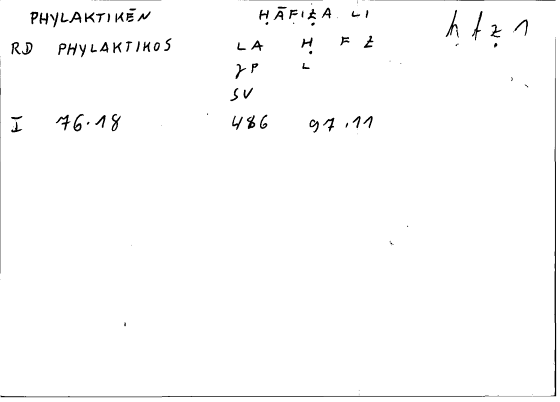 PHYLAKTIKĒN ḤĀFIẒA LI ḥfẓ 1
RD PHYLAKTIKOS LA Ḥ F Ẓ
γP L
SV
I 76.18 486 97.11